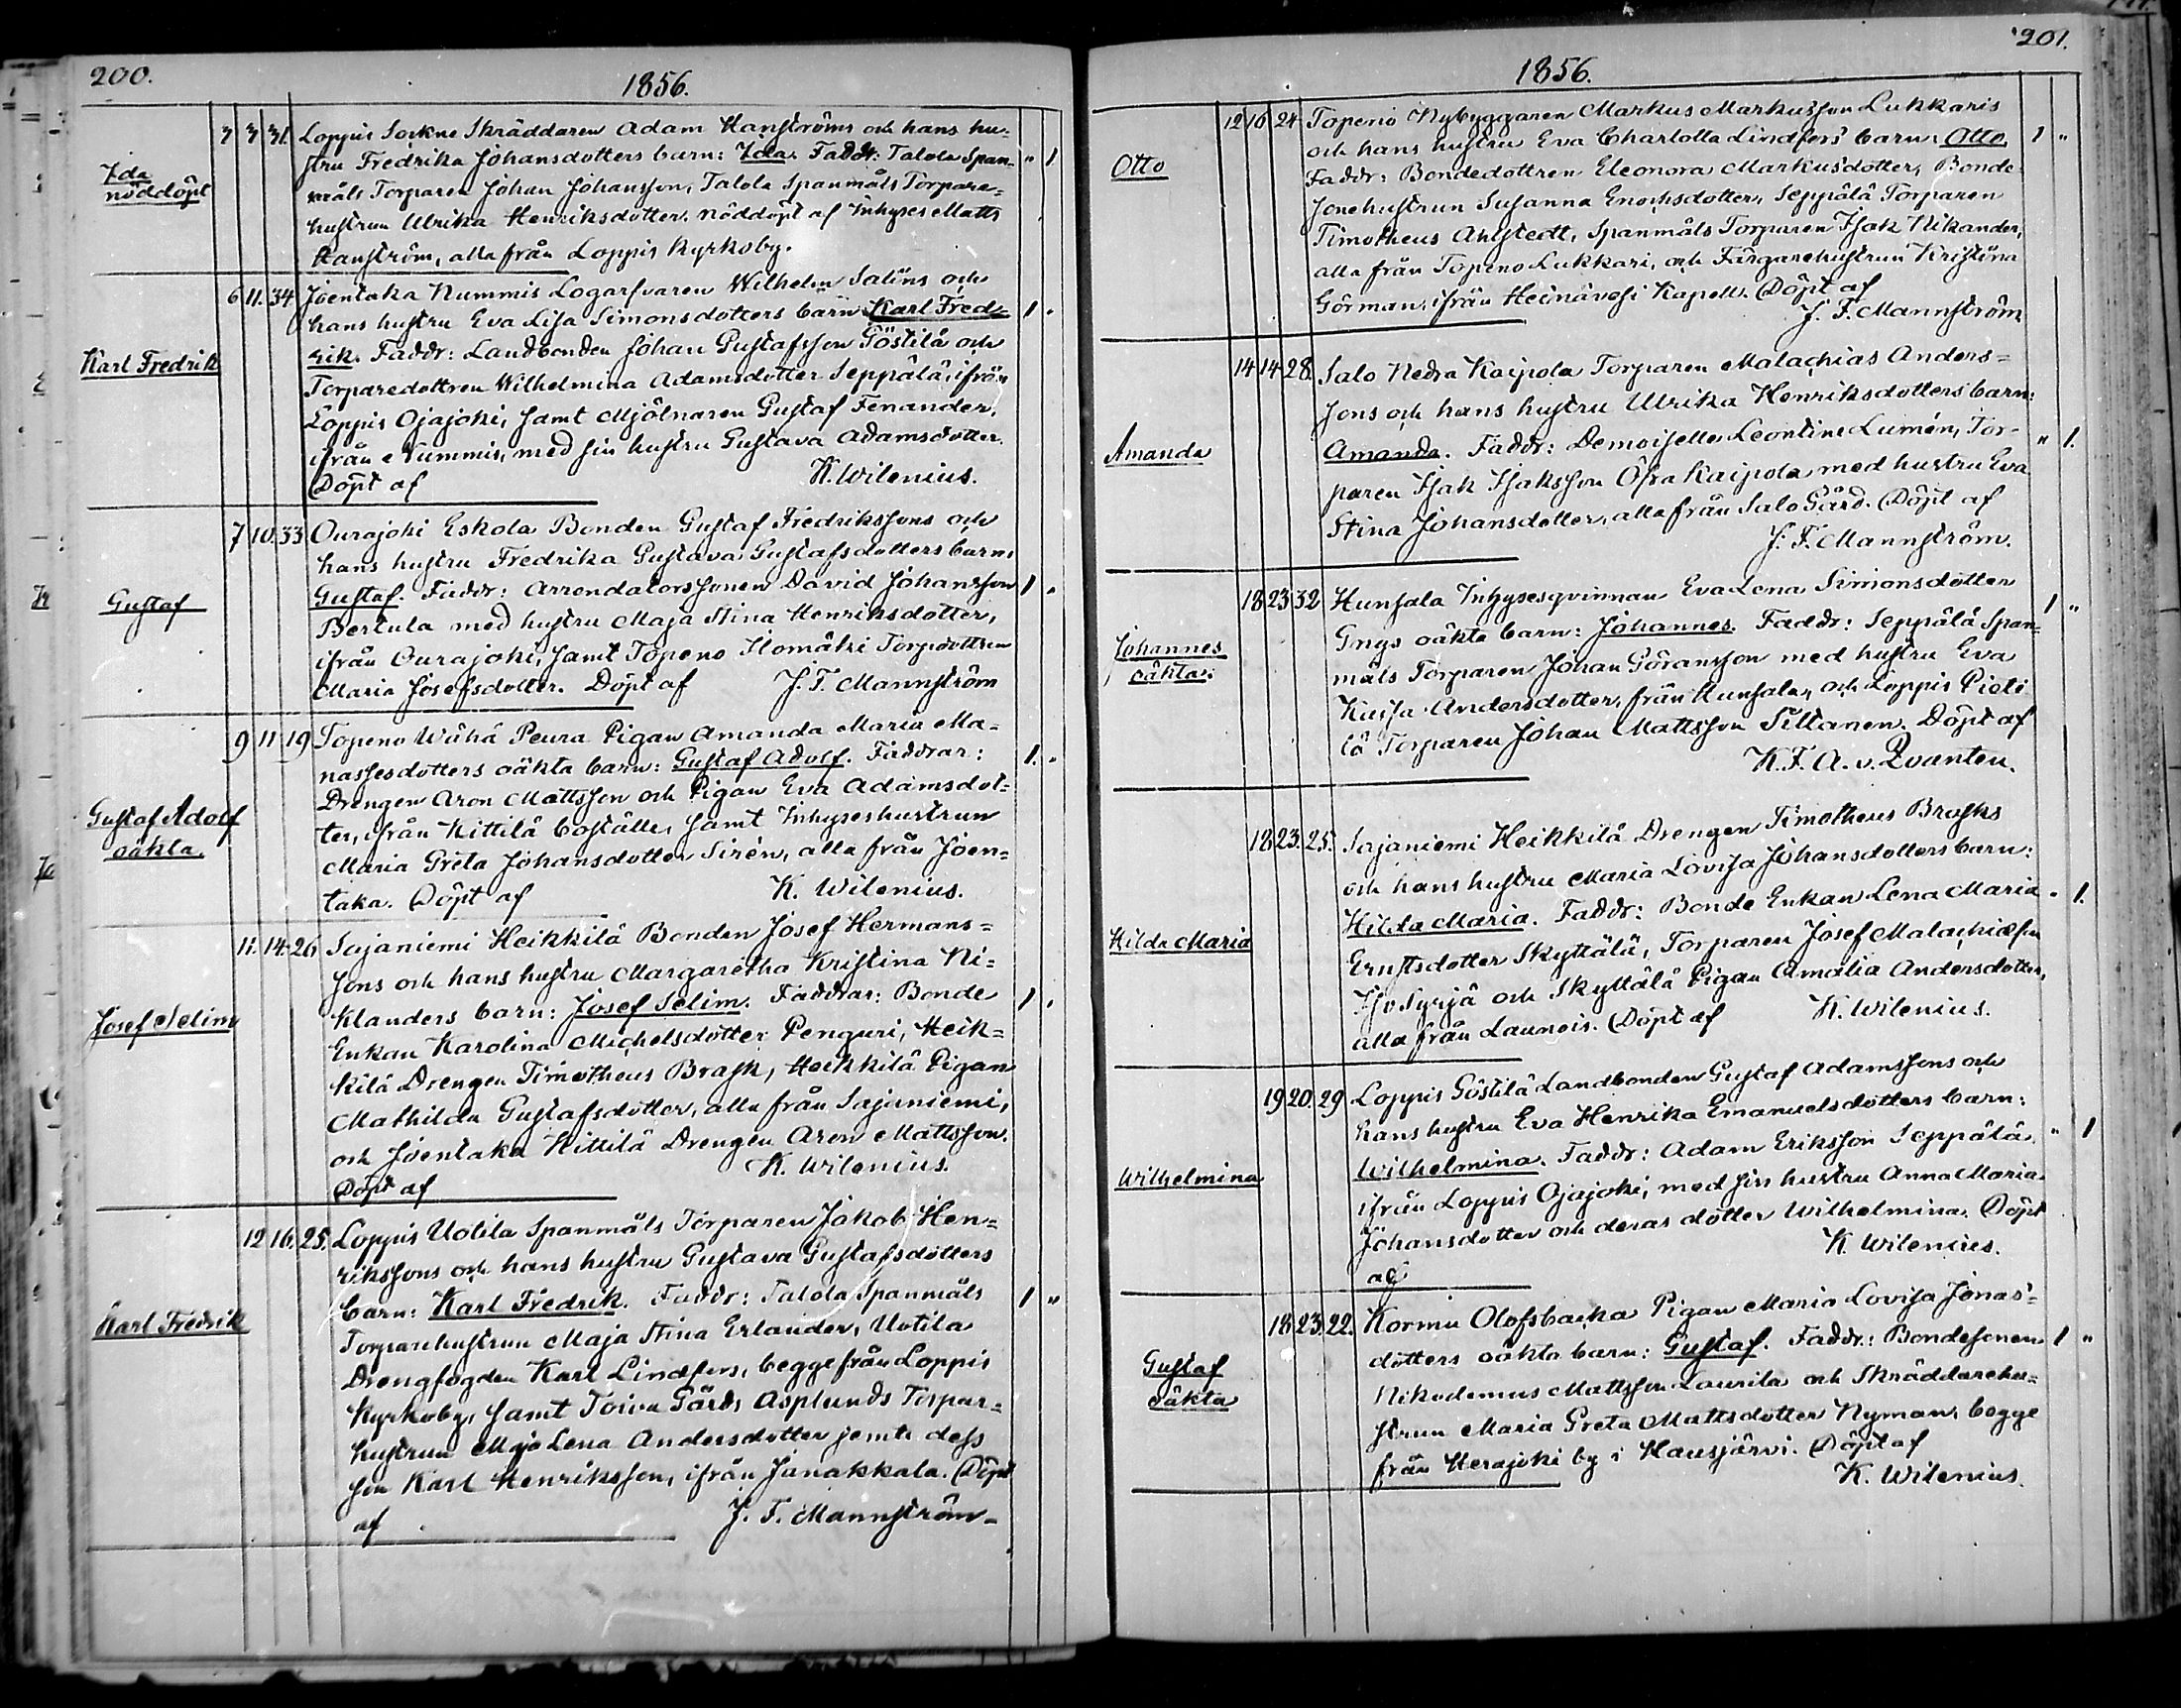 200.
1856.
Ida
nöddöpt
7 7 31. Loppis Sockne Skräddaren Adam Hanströms och hans hu-
stru Fredrika Johansdotters barn: Ida. Faddr: Talola Span- " 1
måls Torparen Johan Johansson, Talola Spanmåls Torpare-
hustrun Ulrika Henriksdotter. nöddöpt af Inhyses Matts
Hanström, alla från Loppis Kyrkoby.
Karl Fredrik
6 11. 34 Joentaka Nummis Logarfvaren Wilhelm Saléns och
hans hustru Eva Lisa Simonsdotters barn Karl Fred- 1 "
rik. Faddr: Landbonden Johan Gustafsson Göstilä och
Torparedottren Wilhelmina Adamsdotter Seppälä, ifrån
Loppis Ojajoki, samt Mjölnaren Gustaf Fenander,
ifrån Nummis, med sin hustru Gustava Adamsdotter.
Döpt af K. Wilenius.
Gustaf
7 10. 33 Ourajoki Eskola Bonden Gustaf Fredrikssons och
hans hustru Fredrika Gustava Gustafsdotters barn:
Gustaf. Faddr: Arrendatorssonen David Johansson 1 "
Bertula med hustru Maja Stina Henriksdotter,
ifrån Ourajoki, samt Topeno Ilomäki Torpdottren
Maria Josefsdotter. Döpt af J. F. Mannström
Gustaf Adolf
oäkta.
9 11 19 Topeno Wähä Peura Pigan Amanda Maria Ma-
nassesdotters oäkta barn: Gustaf Adolf. Faddrar: 1. "
Drengen Aron Mattsson och Pigan Eva Adamsdot-
ter, ifrån Kittilä boställe, samt Inhyseshustrun
Maria Greta Johansdotter Sirén, alla från Joen-
taka. Döpt af K. Wilenius.
Josef Selim
11. 14. 26 Sajaniemi Heikkilä Bonden Josef Hermans-
sons och hans hustru Margaretha Kristina Ni-
klanders barn: Josef Selim. Faddrar: Bonde 1 "
Enkan Karolina Michelsdotter Penguri, Heik-
kilä Drengen Timotheus Brask, Heikkilä Pigan
Mathilda Gustafsdotter, alla från Sajaniemi,
och Joentaka Kittilä Drengen Aron Mattsson.
Döpt af K. Wilenius.
Karl Fredrik
12 16. 25. Loppis Uotila Spanmåls Torparen Jakob Hen-
rikssons och hans hustru Gustava Gustafsdotters
barn: Karl Fredrik. Faddr: Talola Spanmåls 1 "
Torparehustrun Maja Stina Erlander, Uotila
Drengfogden Karl Lindfors, begge från Loppis
Kyrkoby, samt Toivu Gårds Asplunds Torpar-
hustrun Maja Lena Andersdotter jemte dess
son Karl Henriksson, ifrån Janakkala. Döpt
af J. F. Mannström-
201.
1856.
Otto
12 16 24 Topeno Nybyggaren Markus Markusson Lukkaris
och hans hustru Eva Charlotta Lindfors barn: Otto. 1 "
Faddr: Bondedottren Eleonora Markusdotter, Bonde-
sonehustrun Susanna Enochsdotter, Seppälä Torparen
Timotheus Ahlstedt, Spanmåls Torparen Isak Nikander,
alla från Topeno Lukkari, och Färgarehustrun Kristina
Görman, ifrån Heinävesi Kapell. Döpt af
J. F. Mannström
Amanda
14 14 28. Salo Nedra Kaipola Torparen Malachias Anders-
sons och hans hustru Ulrika Henriksdotters barn:
Amanda. Faddr: Demoiselle Leontine Lumén, Tor- " 1.
paren Isak Isaksson Öfra Kaipola med hustru Eva
Stina Johansdotter, alla från Salo Gård. Döpt af
J. F. Mannström.
Johannes
oäkta.
18 23 32 Hunsala Inhysesqvinnan Eva Lena Simonsdotter
Gngs oäkta barn: Johannes. Faddr: Seppälä Span- 1 "
måls Torparen Johan Göransson med hustru Eva
Kaisa Andersdotter, från Hunsala, och Loppis Pieti-
lä Torparen Johan Mattsson Tiltanen. Döpt af
K. F. A. v. Qvanten.
Hilda Maria
18 23. 25. Sajaniemi Heikkilä Drengen Timotheus Brasks
och hans hustru Maria Lovisa Johansdotters barn:
Hilda Maria. Faddr: Bonde Enkan Lena Maria " 1.
Ernstsdotter Skyttälä, Torparen Josef Malachiasson
Iso Syrjä och Skyttälä Pigan Amalia Andersdotter,
alla från Launois. Döpt af K. Wilenius.
Wilhelmina
19 20. 29 Loppis Göstilä Landbonden Gustaf Adamssons och
hans hustru Eva Henrika Emanuelsdotters barn:
Wilhelmina. Faddr: Adam Eriksson Seppälä " 1
ifrån Loppis Ojajoki, med sin hustru Anna Maria
Johansdotter och deras dotter Wilhelmina. Döpt
af K. Wilenius.
Gustaf
oäkta
18 23. 22. Kormu Olofsbacka Pigan Maria Lovisa Jonas-
dotters oäkta barn: Gustaf. Faddr: Bondesonen 1 "
Nikodemus Mattsson Laurila och Skräddarehu-
strun Maria Greta Mattsdotter Nyman, begge
från Herajoki by i Hausjärvi. Döpt af
K. Wilenius.